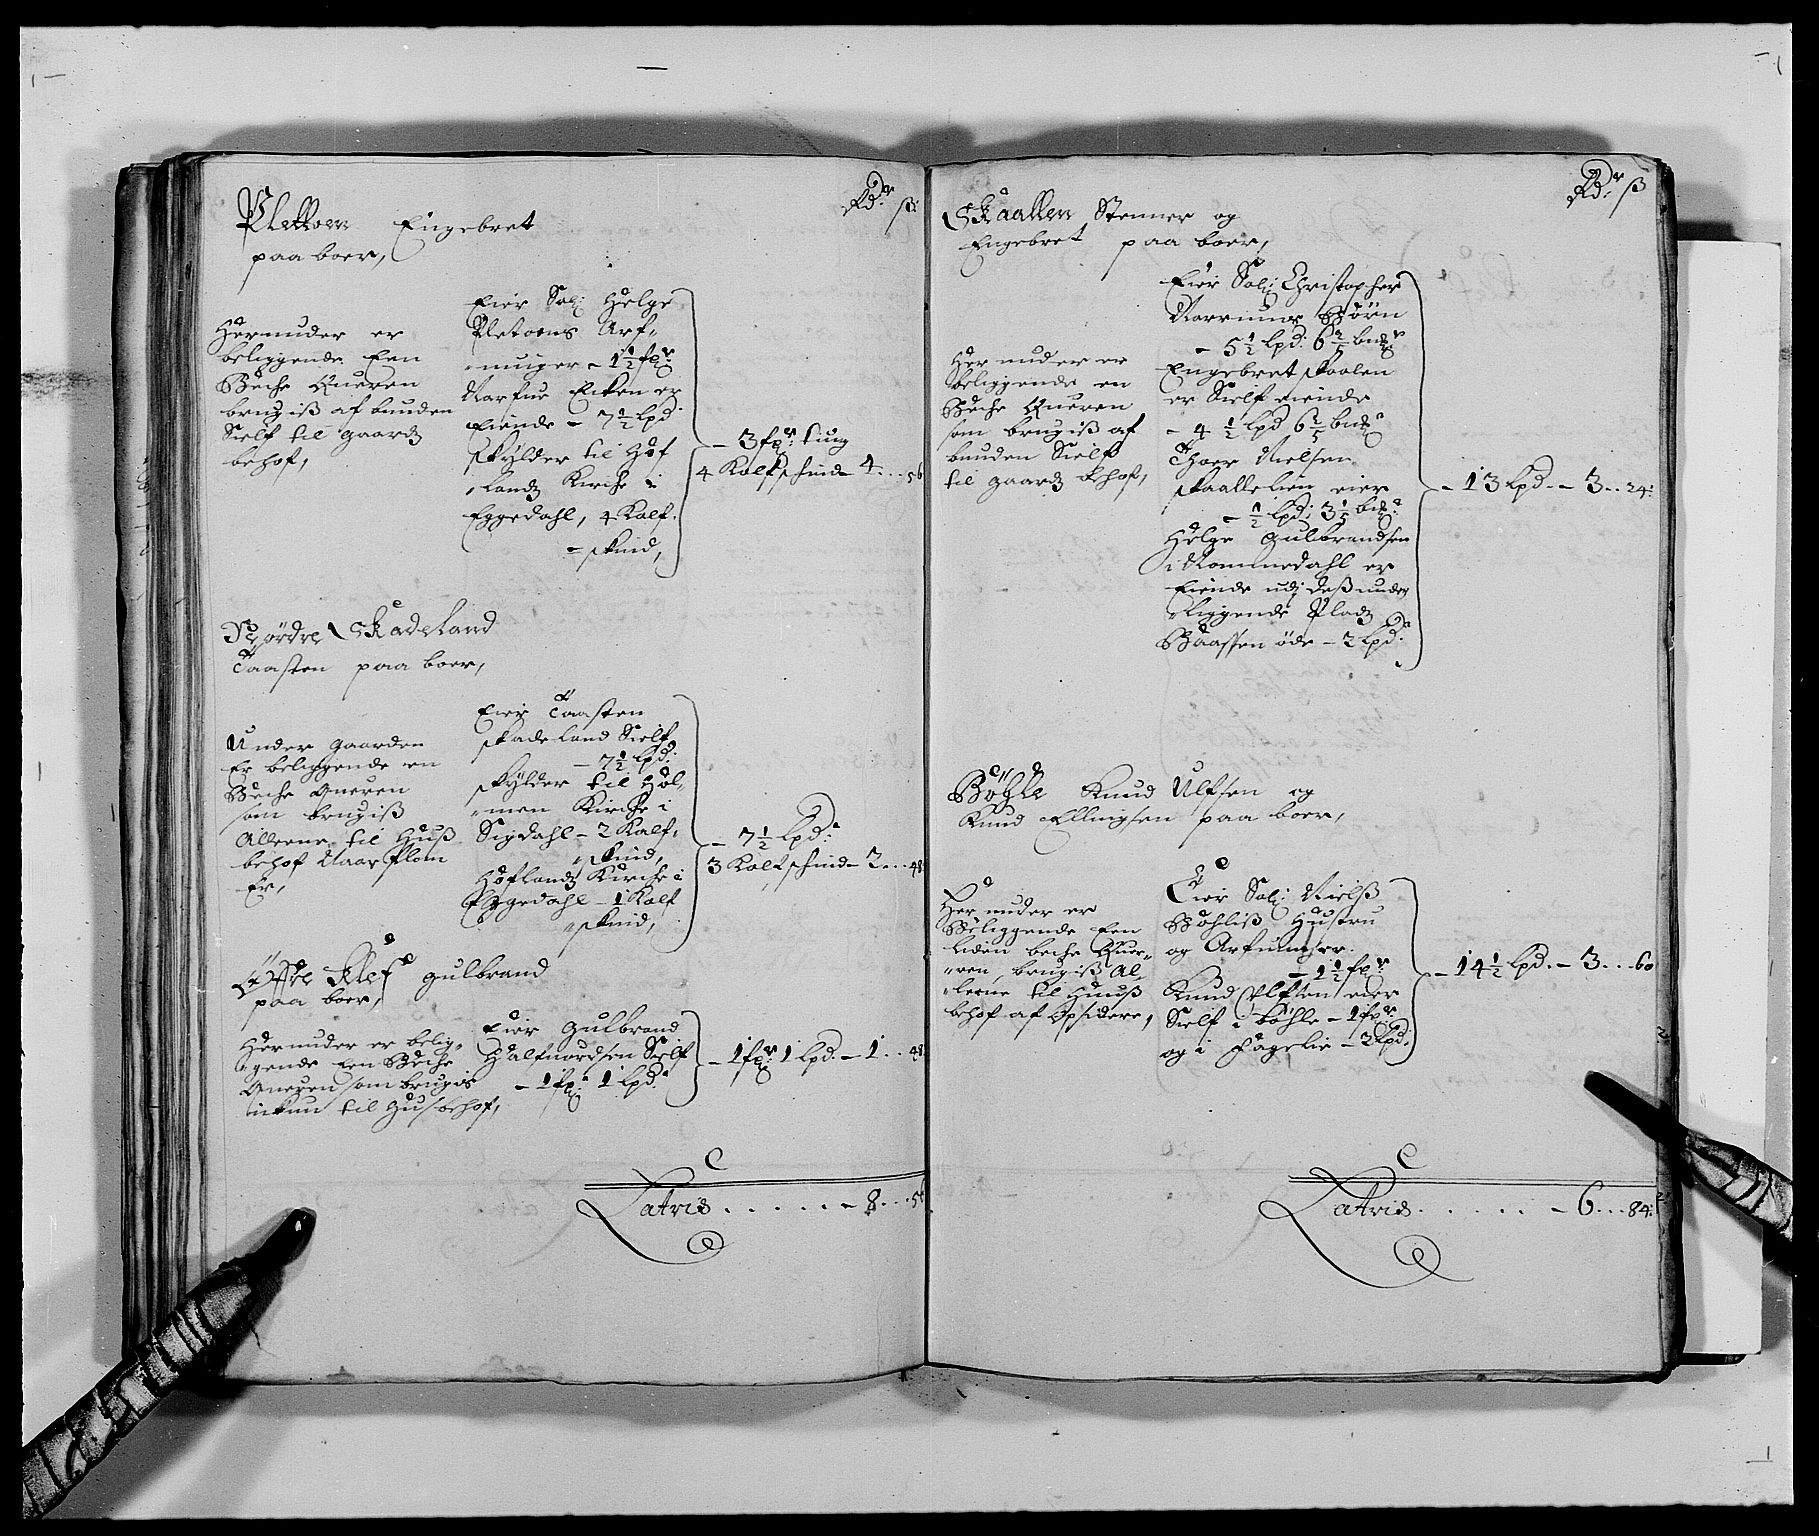 Rdr ß:
Plettoen Engebret
paa boer,
Herunder er
beliggende Een
Beche Queren
brugiß af bunden
Sielf til gaardz
behof,
Eier Sal: Helge
Pletoens Arf-
-
- 1½ fpr
Narfue Eiken er
Eiende - 7½ lpd
skylder til Hof
Landz Kirche i
Eggedahl, 4 Kalf
- skind,
- 3 fpr: tung
4 Kalfschind - 4 . . . 56
Nordre Skadeland
Taasten paa boer,
Under gaarden
Er beliggende en
Beche Queren
som brugiß
Alleene til Huß
behof Naar flom
Er,
Eier Taasten
skadeland Sielf
- 7½ lpd:
skylder til Hol-
men Kirche i
Sigdahl - 2 Kalf-
skind,
Hoflandz Kirche i
Eggedahl - 1 Kalf
skind,
- 7½ lpd:
3 Kalfschind - 2 . . . 48
Øffre Klef gulbrand
paa boer,
Herunder er belig-
gende Een Beche
Queren som brugis
til Husbehof,
Eier Gulbrand
Halfuordsen Sielf
- 1 fp: 1 lpd:
- 1 fpr 1 lpd. - 1 . . 48
Latris . . . . . . - 8 . . . 56
Rdr: ß
Skaallen Stenner og
Engebret paa boer,
Her under er
beliggende en
Beche Queren
som brugiß af
bunden Sielf
til gaardz behof,
Eier Sal: Christopher
Børn
- 5½ lpd: 6⅖ bmr
Engebret skaalen
er Sielf eiende
- 4½ lpd 6⅖ bm
Thoer Nielsen
skaallelien eier
- ½ lpd; 3⅕ bm:
Helge Gulbrandsen
i Nommedahl er
Eiende udj deßunder
liggende Pladz
Baassen øde - 2 lpd:
- 13 lpd. - 3 . . 24:
Bøhle Knud Ulfsen og
Knud Ellingsen paa boer,
Her under er
Beliggende Een
Liden beche Quer-
ren, brugiß Al-
leene til Huuß
behof af Opsidere,
Eier Sal: Nielß
Bøhliß Hustru
og Arfuinger.
- 1½ fpr
Knud Ulfsen eier
Sielf i bøhle - 1 fpr
og i Fagerlie - 2 lpd:
- 14½ lpd. - 3 . . . 60
Latris . . . . . - 6 . . . 84: